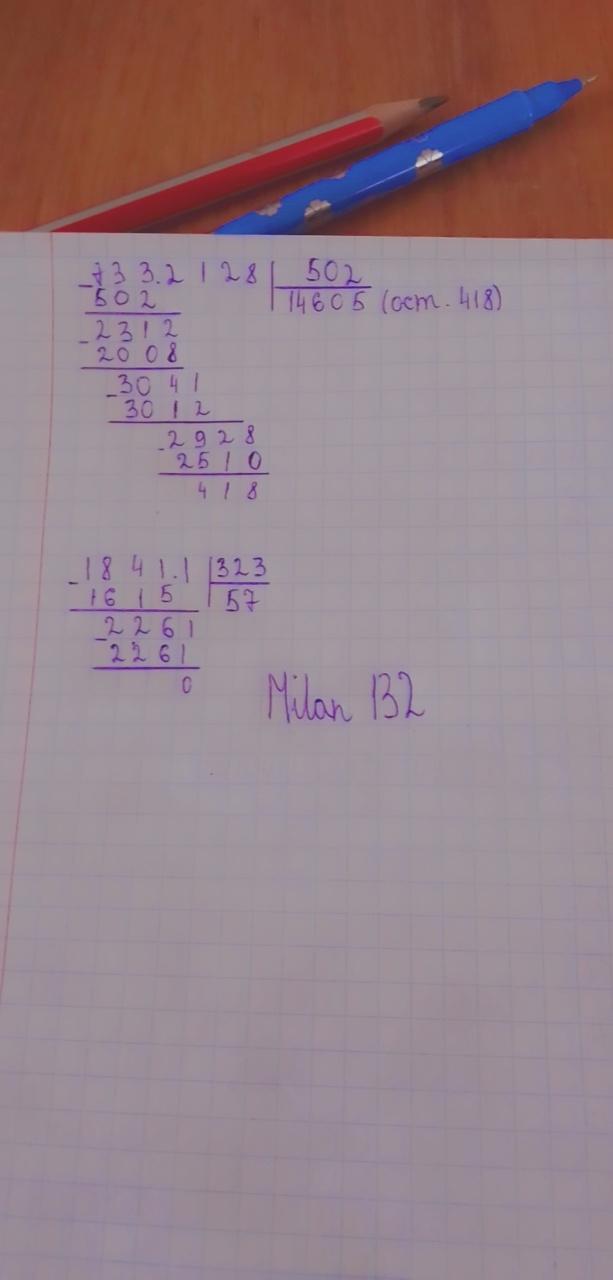 -733.2128 | 502
502 14605 (ост. 418)
-2312
2008
-3041
3012
-2928
2510
418
-1841.1 | 323
1615 57
-2261
2261
0
Milan 132